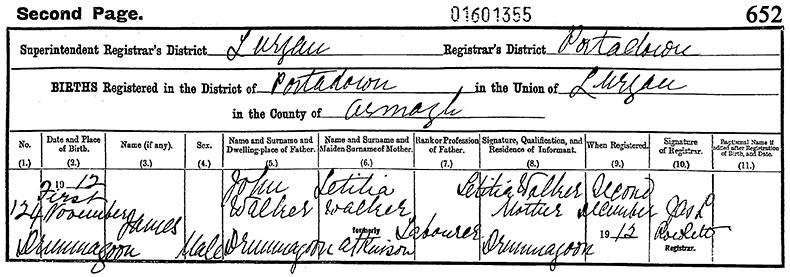 Second Page. 01601355 652
Superintendent Registrar's District Lurgan Registrar's District Portadown
BIRTHS Registered in the District of Portadown in the Union of Lurgan
in the County of Armagh
No. Date and Place of Birth. Name (if any). Sex. Name and Surname and Dwelling-place of Father. Name and Surname and Maiden Surname of Mother. Rank or Profession of Father. Signature, Qualification, and Residence of Informant. When Registered. Signature of Registrar. Baptismal Name if added after Registration of Birth, and Date.
(1.) (2.) (3.) (4.) (5.) (6.) (7.) (8.) (9.) (10.) (11.)
1912 John Letitia Letitia Walker Second
First Walker Walker Mother December
124 November James formerly Labourer 1912
Drumnagoon Male Drumnagoon Atkinson Drumnagoon Registrar.